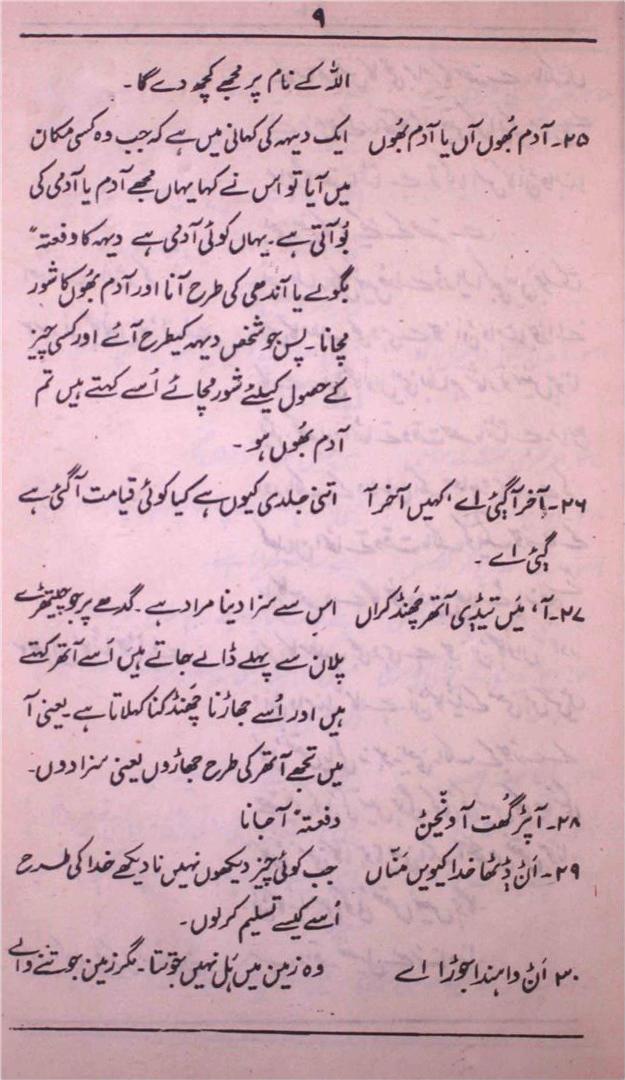 ۹
اللہ کے نام پر مجھے کچھ دے گا۔
۲۵۔ آدم بُھوں آں یا آدم بُھوں ایک دیہہ کی کہانی میں ہے کہ جب وہ کسی مکان
میں آیا تو اُس نے کہا یہاں مجھے آدم یا آدمی کی
بُو آتی ہے۔ یہاں کوئی آدمی ہے دیہہ کا دفعتہً
بگولے یا آندھی کی طرح آنا اور آدم بُھوں کا شور
مچانا۔ پس جو شخص دیہہ کیطرح آئے اور کسی چیز
کے حصول کیلئے شور مچائے اُسے کہتے ہیں تم
آدم بُھوں ہو۔
۲۶۔ آخر آ گئی اے، کہیں آخر آ اتنی جلدی کیوں ہے کیا کوئی قیامت آ گئی ہے
گئی اے۔
۲۷۔ آ، میں تیڈی آتھر چھنڈ کراں اس سے سزا دینا مراد ہے۔ گدھے پر جو چیتھڑے
پلان سے پہلے ڈالے جاتے ہیں اُسے آتھر کہتے
ہیں اور اُسے جھاڑنا چھنڈکنا کہلاتا ہے۔ یعنی آ
میں تجھے آتھر کی طرح جھاڑوں یعنی سزا دوں۔
۲۸۔ آپڑ گُھت آ ونجن دفعتہً آ جانا
۲۹۔ اَن ڈِٹھا خدا کیویں مَنّاں جب کوئی چیز دیکھوں نہیں نا دیکھے خدا کی طرح
اُسے کیسے تسلیم کر لوں۔
۳۰ اَن واہندا جوڑا اے وہ زمین میں ہل نہیں جوتتا۔ مگر زمین جوتنے والے